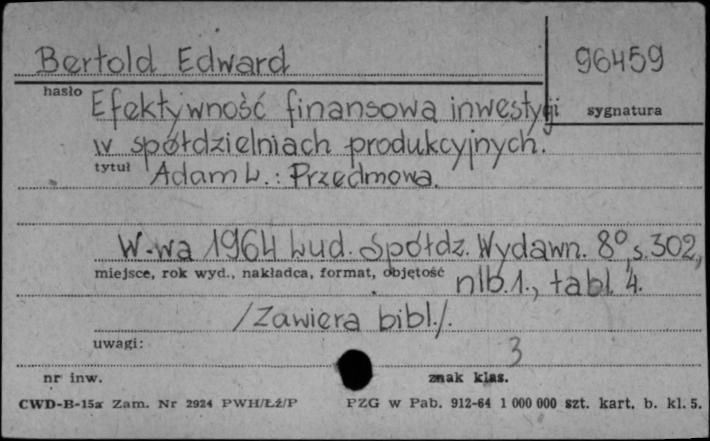 Bertold Edward
96459
hasło
sygnatura
Efektywność finansowa inwestycji
w spółdzielniach produkcyjnych.
tytuł
Adam W.: Przedmowa.
W-wa 1964 Lud. Spółdz. Wydawn. 8°, s. 302,
miejsce, rok wyd., nakładca, format, objętość
nlb. 1., tabl. 4.
/Zawiera bibl./.
uwagi:
3
nr inw.
znak klas.
CWD-B-15a Zam. Nr 2924 PWH/Łź/P
PZG w Pab. 912-64 1 000 000 szt. kart. b. kl. 5.